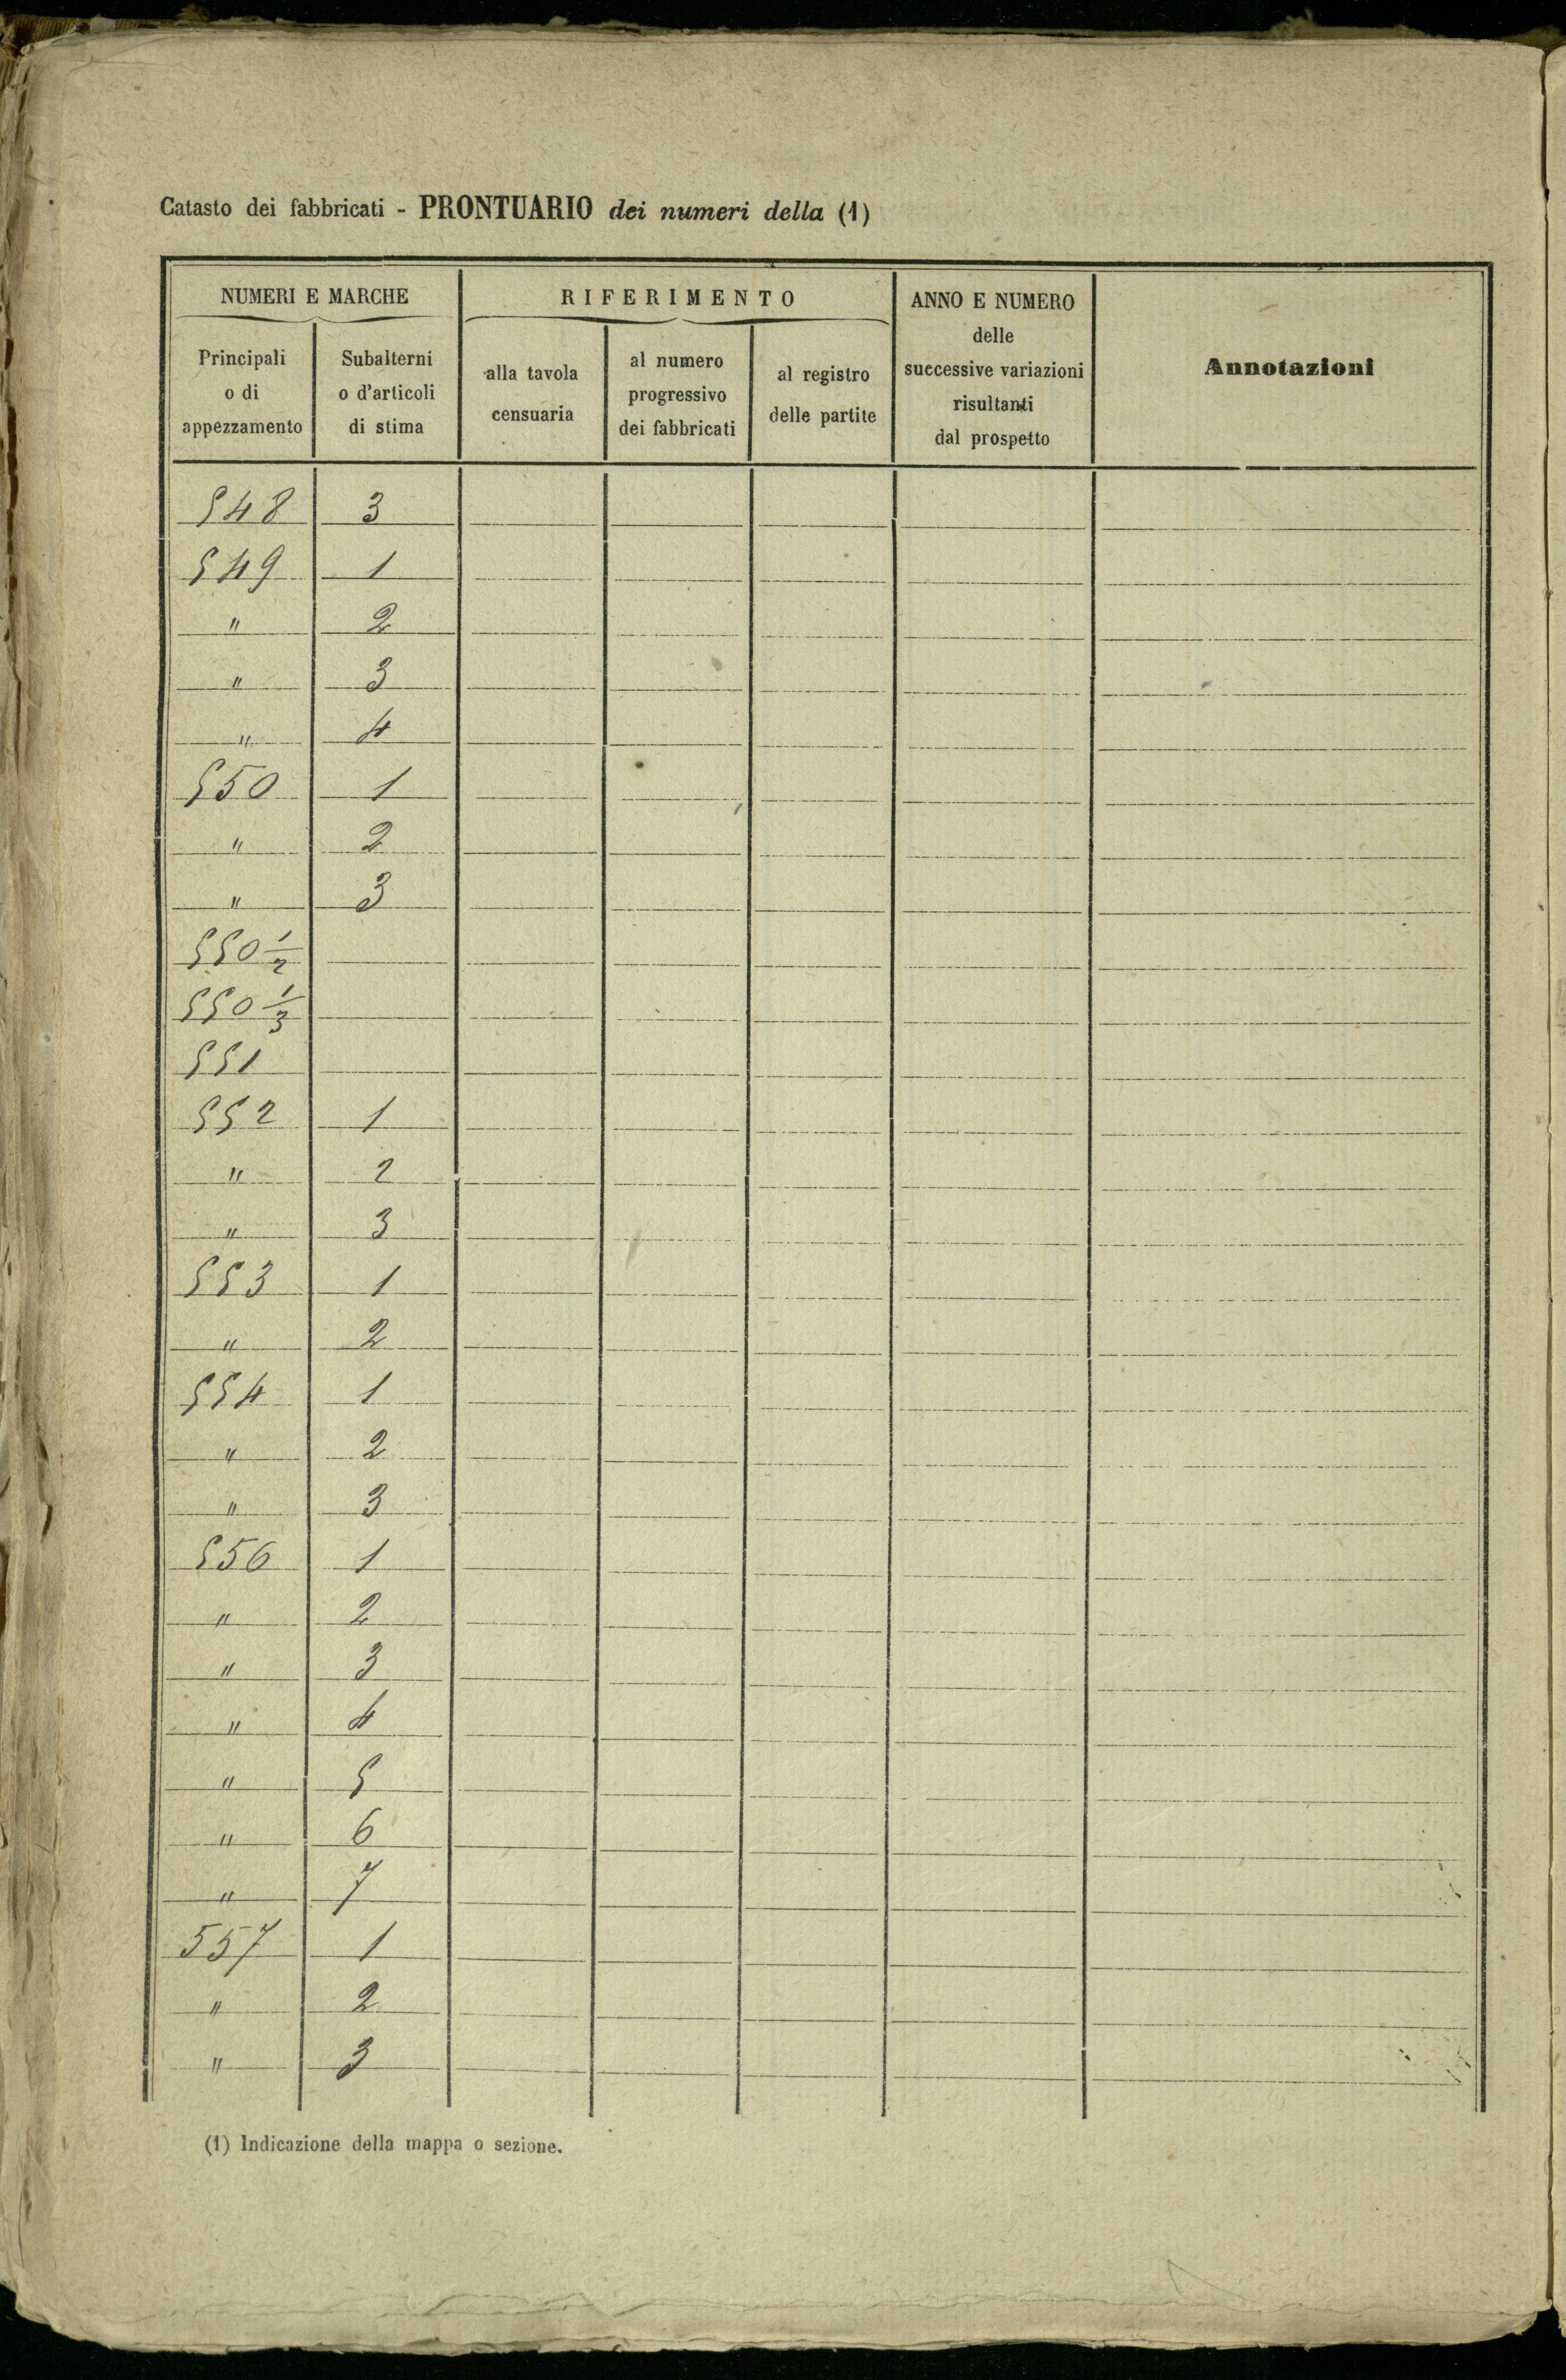 Catasto dei fabbricati - PRONTUARIO dei numeri della (1)
NUMERI E MARCHE
Principali
o di
appezzamento
Subalterni
o d'articoli
di stima
RIFERIMENTO
alla tavola
censuaria
al numero
progressivo
dei fabbricati
al registro
delle partite
ANNO E NUMERO
delle
successive variazioni
risultanti
dal prospetto
Annotazioni
548 3
549 1
" 2
" 3
" 4
550 1
" 2
" 3
550 1/2
550 1/3
551
552 1
" 2
" 3
553 1
" 2
554 1
" 2
" 3
556 1
" 2
" 3
" 4
" 5
" 6
" 7
557 1
" 2
" 3
(1) Indicazione della mappa o sezione.